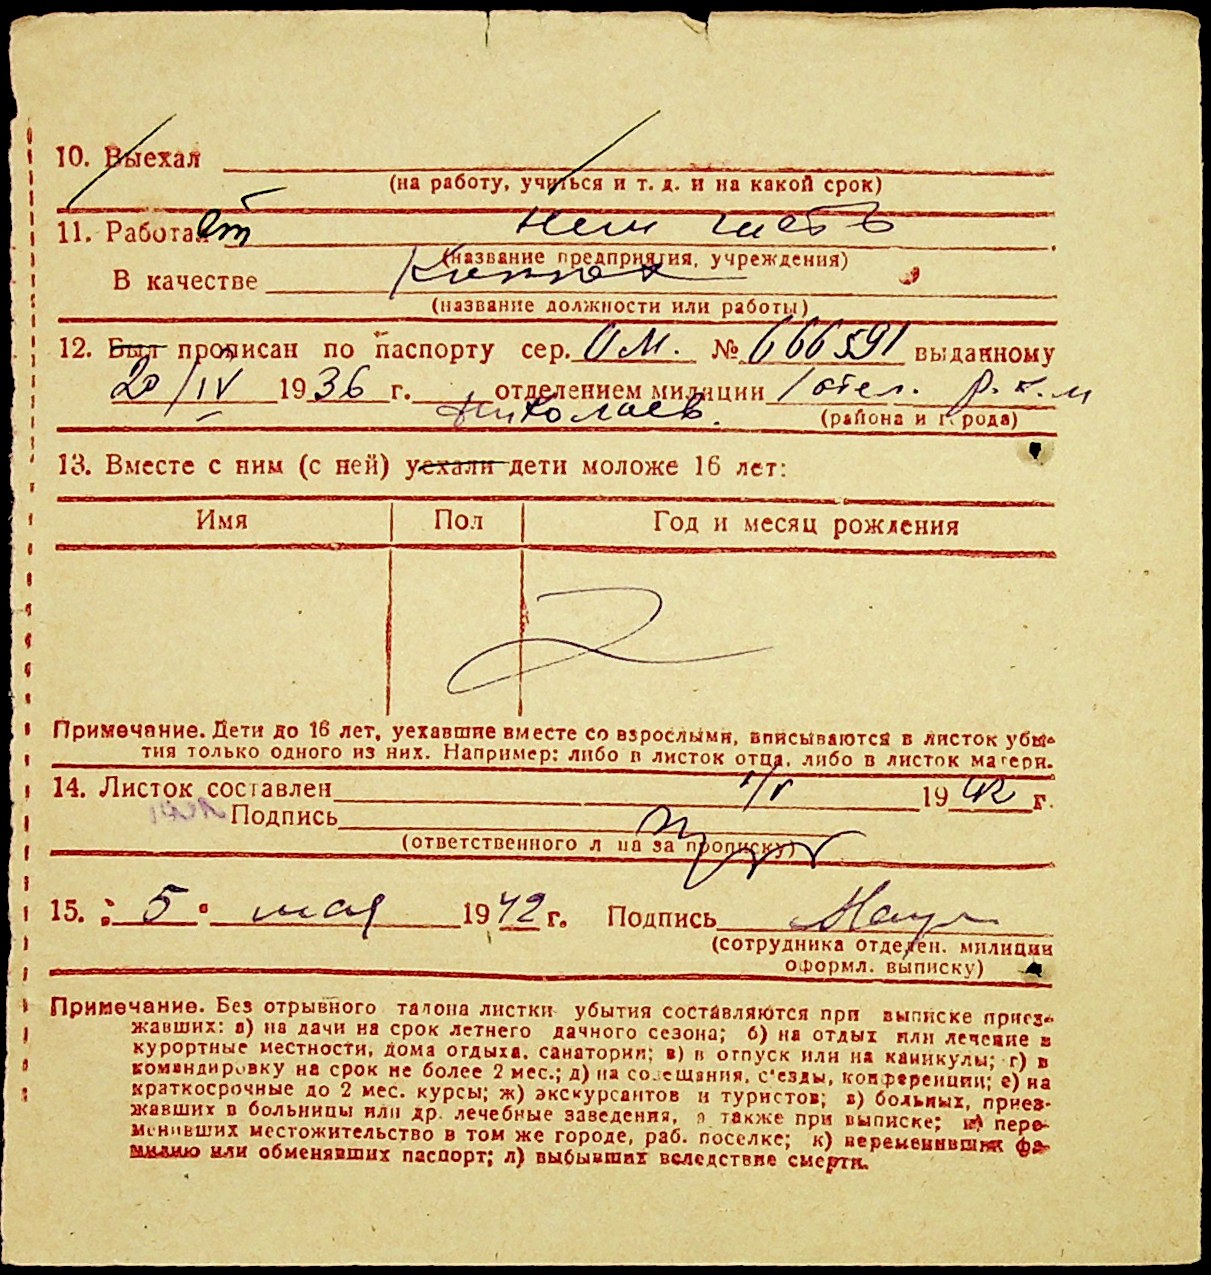 10. Выехал
(на работу, учиться и т. д. и на какой срок)
11. Работает
(название предприятия, учреждения)
В качестве
(название должности или работы)
12. Был прописан по паспорту сер. ОМ. № 666591 выданному
20/IV 1936 г. отделением милиции 1 отел. р.к.м
Николаев. (района и города)
13. Вместе с ним (с ней) уехали дети моложе 16 лет:
Имя Пол Год и месяц рождения
Примечание. Дети до 16 лет, уехавшие вместе со взрослыми, вписываются в листок убы-
тия только одного из них. Например: либо в листок отца, либо в листок матери.
14. Листок составлен 1/V 1942 г.
Подпись
(ответственного лица за прописку)
15. 5 мая 1942 г. Подпись
(сотрудника отделен. милиции
оформл. выписку)
Примечание. Без отрывного талона листки убытия составляются при выписке приез-
жавших: а) на дачи на срок летнего дачного сезона; б) на отдых или лечение в
курортные местности, дома отдыха, санатории; в) в отпуск или на каникулы; г) в
командировку на срок не более 2 мес.; д) на совещания, с'езды, конференции; е) на
краткосрочные до 2 мес. курсы; ж) экскурсантов и туристов; з) больных, приез-
жавших в больницы или др. лечебные заведения, а также при выписке; и) пере-
менивших местожительство в том же городе, раб. поселке; к) переменивших фа-
милию или обменявших паспорт; л) выбывших вследствие смерти.